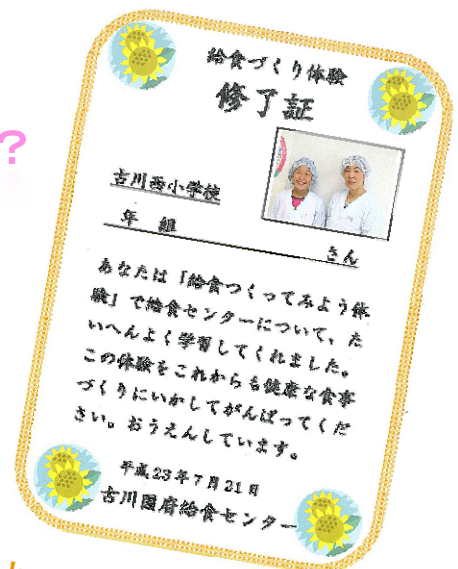 給食づくり体験
修了証
?
古川西小学校
年 組
さん
あなたは「給食つくってみよう体
験」で給食センターについて、た
いへんよく学習してくれました。
この体験をこれからも健康な食事
づくりにいかしてがんばってくだ
さい。おうえんしています。
平成23年7月21日
古川国府給食センター